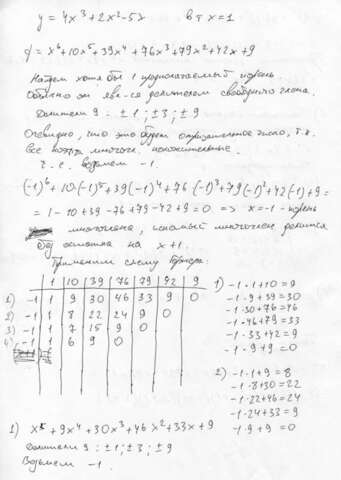 y = 4x³ + 2x² - 5x в т x = 1
y = x⁶ + 10x⁵ + 39x⁴ + 76x³ + 79x² + 42x + 9
Найдем хотя бы 1 целочисленный корень
Обычно он явл-ся делителем свободного члена.
Делители 9: ±1; ±3; ±9
Очевидно, что это будет отрицательное число, т.к.
все коэфф. многочл. положительные.
Т.е. возьмем -1.
(-1)⁶ + 10·(-1)⁵ + 39(-1)⁴ + 76·(-1)³ + 79(-1)² + 42(-1) + 9 =
= 1 - 10 + 39 - 76 + 79 - 42 + 9 = 0 => x = -1 - корень
многочлена, исходный многочлен делится
без остатка на x + 1.
Применим схему Горнера:
1 10 39 76 79 42 9
1) -1 1 9 30 46 33 9 0
2) -1 1 8 22 24 9 0
3) -1 1 7 15 9 0
4) -1 1 6 9 0
1) -1·1+10=9
-1·9+39=30
-1·30+76=46
-1·46+79=33
-1·33+42=9
-1·9+9=0
2) -1·1+9=8
-1·8+30=22
-1·22+46=24
-1·24+33=9
-1·9+9=0
1) x⁵ + 9x⁴ + 30x³ + 46x² + 33x + 9
Делители 9: ±1; ±3; ±9
Возьмем -1.